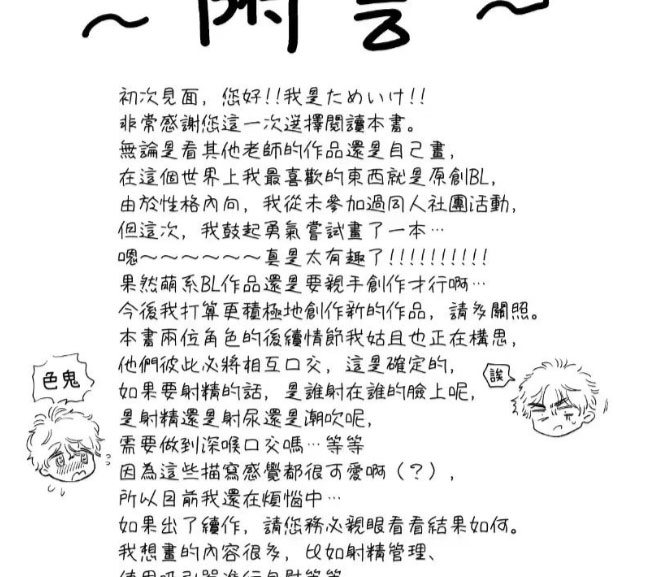 ~附言~
初次見面，您好!!我是ためいけ!!
非常感謝您這一次選擇閱讀本書。
無論是看其他老師的作品還是自己畫，
在這個世界上我最喜歡的東西就是原創BL，
由於性格內向，我從未參加過同人社團活動，
但這次，我鼓起勇氣嘗試畫了一本…
嗯～～～～～～真是太有趣了!!!!!!!!!!
果然萌系BL作品還是要親手創作才行啊…
今後我打算更積極地創作新的作品，請多關照。
本書兩位角色的後續情節我姑且也正在構思，
他們彼此必將相互口交，這是確定的，
色鬼
誒
如果要射精的話，是誰射在誰的臉上呢，
是射精還是射尿還是潮吹呢，
需要做到深喉口交嗎…等等
因為這些描寫感覺都很可愛啊（？），
所以目前我還在煩惱中…
如果出了續作，請您務必親眼看看結果如何。
我想畫的內容很多，比如射精管理、